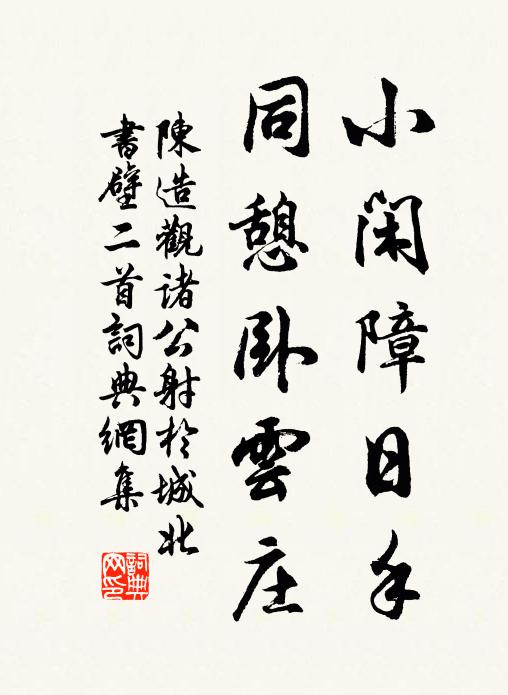 小閑障日手
同憩卧雲庄
陳造觀諸公射於城北
書壁二首詞典網集
詞典網印